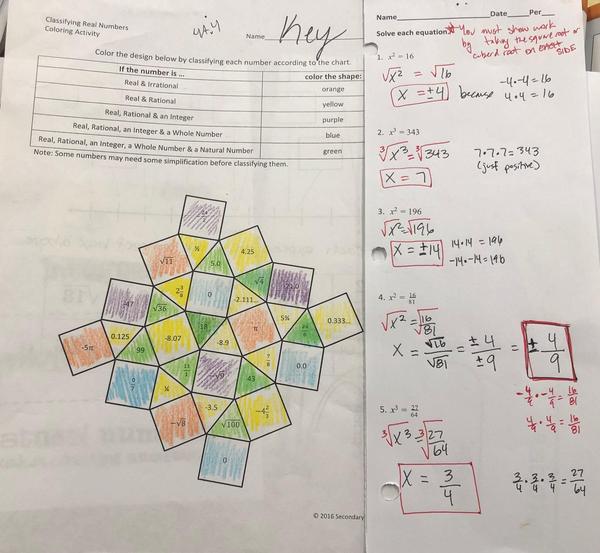 Classifying Real Numbers
Coloring Activity
Name
Key
Color the design below by classifying each number according to the chart.
If the number is ...
color the shape:
Real & Irrational
orange
Real & Rational
yellow
Real, Rational & an Integer
purple
Real, Rational, an Integer & a Whole Number
blue
Real, Rational, an Integer, a Whole Number & a Natural Number
green
Note: Some numbers may need some simplification before classifying them.
√11
¾
5.0
4.25
√4
√36
2⅜
0
-2.111...
-47
18
π
5¾
0.333...
-5π
0.125
99
-8.07
-8.9
0.0
-√9
43
-√8
-3.5
√100
0
© 2016 Secondary
Name Date Per
Solve each equation.
* You must show work
by taking the square root or
cubed root on EACH
SIDE
1. x² = 16
√x² = √16
x = ±4
because
-4·-4 = 16
4·4 = 16
2. x³ = 343
³√x³ = ³√343
x = 7
7·7·7 = 343
(just positive)
3. x² = 196
√x² = √196
x = ±14
14·14 = 196
-14·-14 = 196
4. x² = 16/81
√x² = √16/81
x = √16/√81 = ±4/±9 = ± 4/9
-4/9 · -4/9 = 16/81
4/9 · 4/9 = 16/81
5. x³ = 27/64
³√x³ = ³√27/64
x = 3/4
3/4 · 3/4 · 3/4 = 27/64